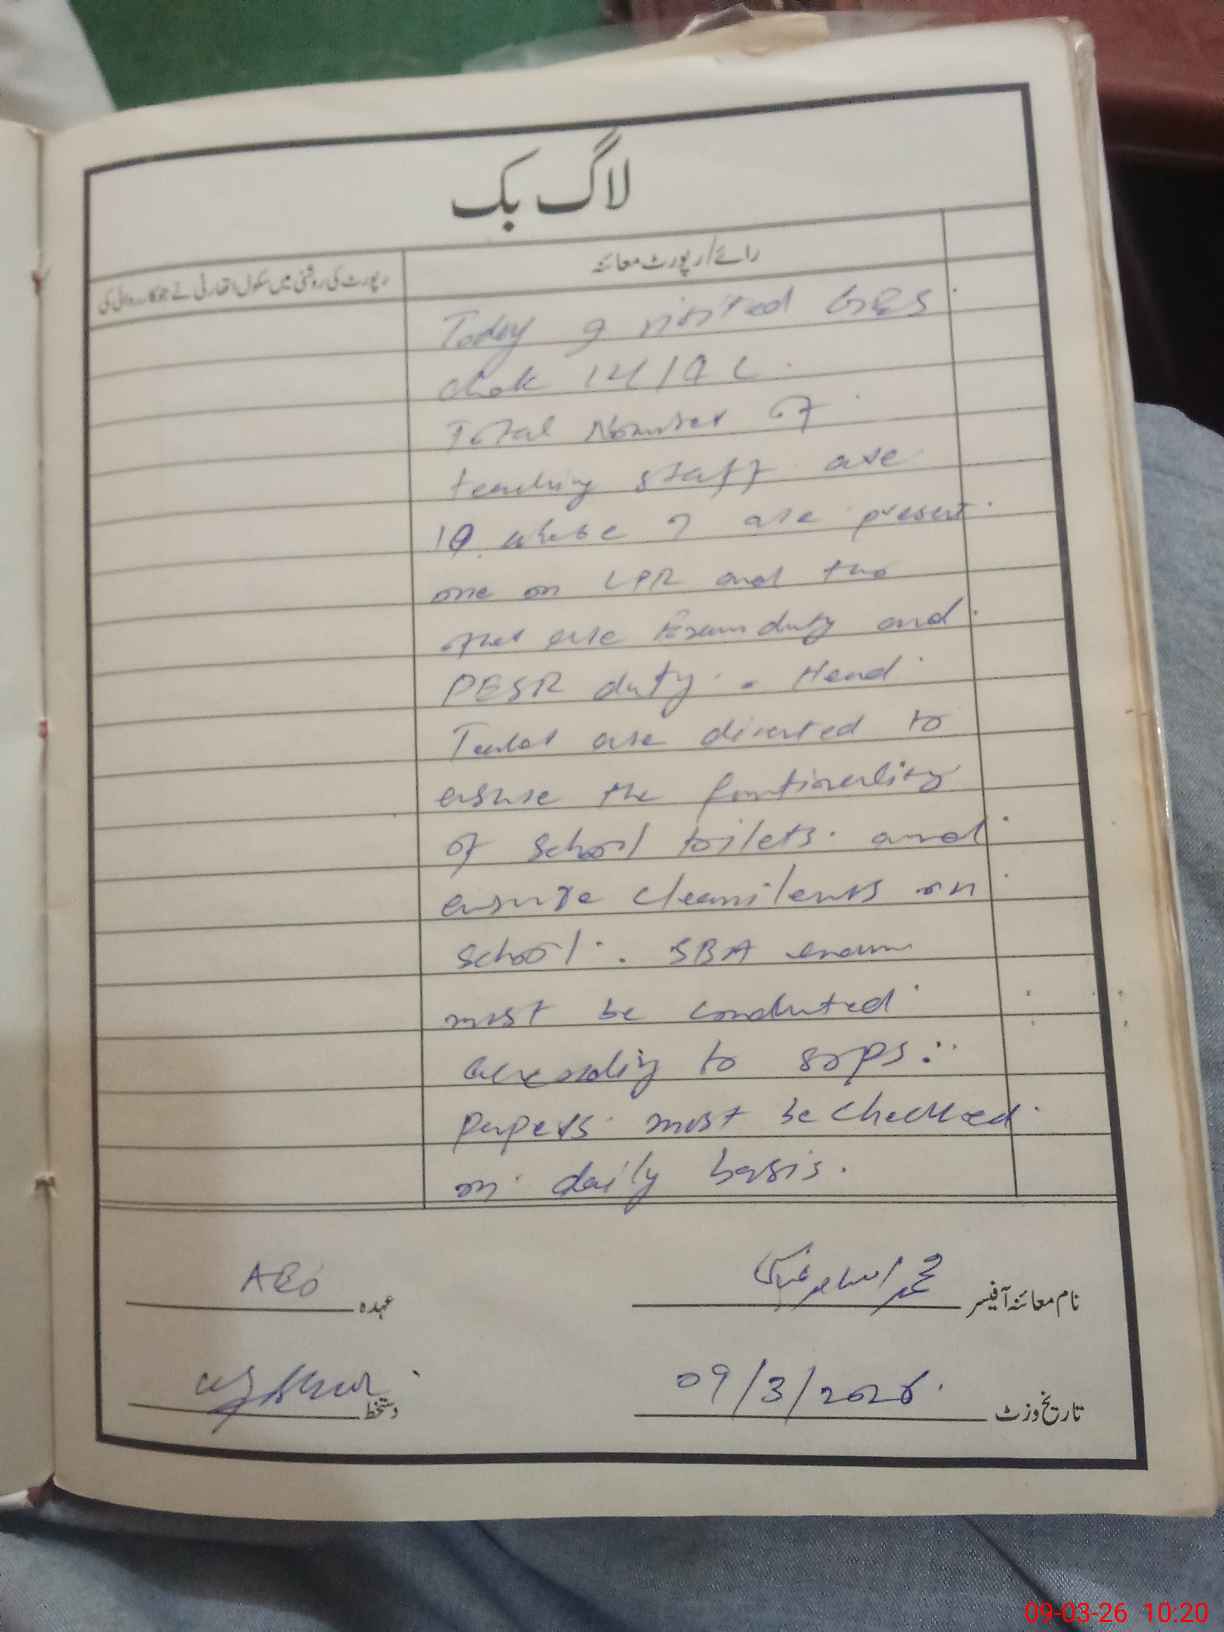 لاگ بک
رائے/رپورٹ معائنہ
رپورٹ کی روشنی میں سکول اتھارٹی نے جو کارروائی کی
Today I visited GES
chak 121/9 L.
Total Number of
teaching staff are
10 whose 7 are present
one on LPR and two
other are Exam duty and
PESR duty. Head
Teacher are directed to
ensure the functionality
of school toilets. and
ensure cleanilenss on
school. SBA exam
must be conducted
according to sops.
papers must be checked
on daily basis.
نام معائنہ آفیسر محمد
عہدہ AEO
تاریخ وزٹ 09/3/2026.
دستخط
09-03-26 10:20